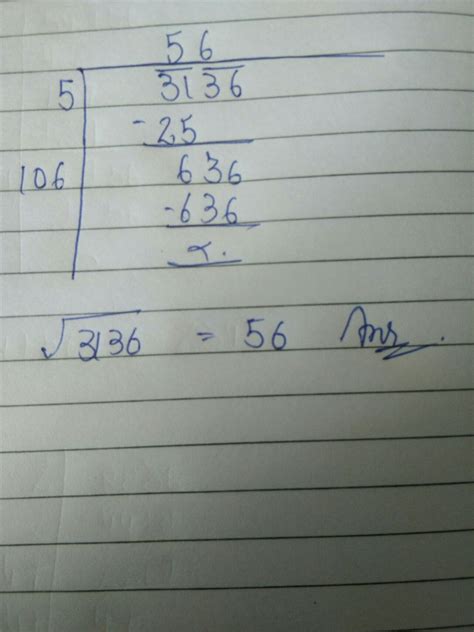 56
5 3136
-25
106 636
-636
x.
√3136 = 56 Ans.